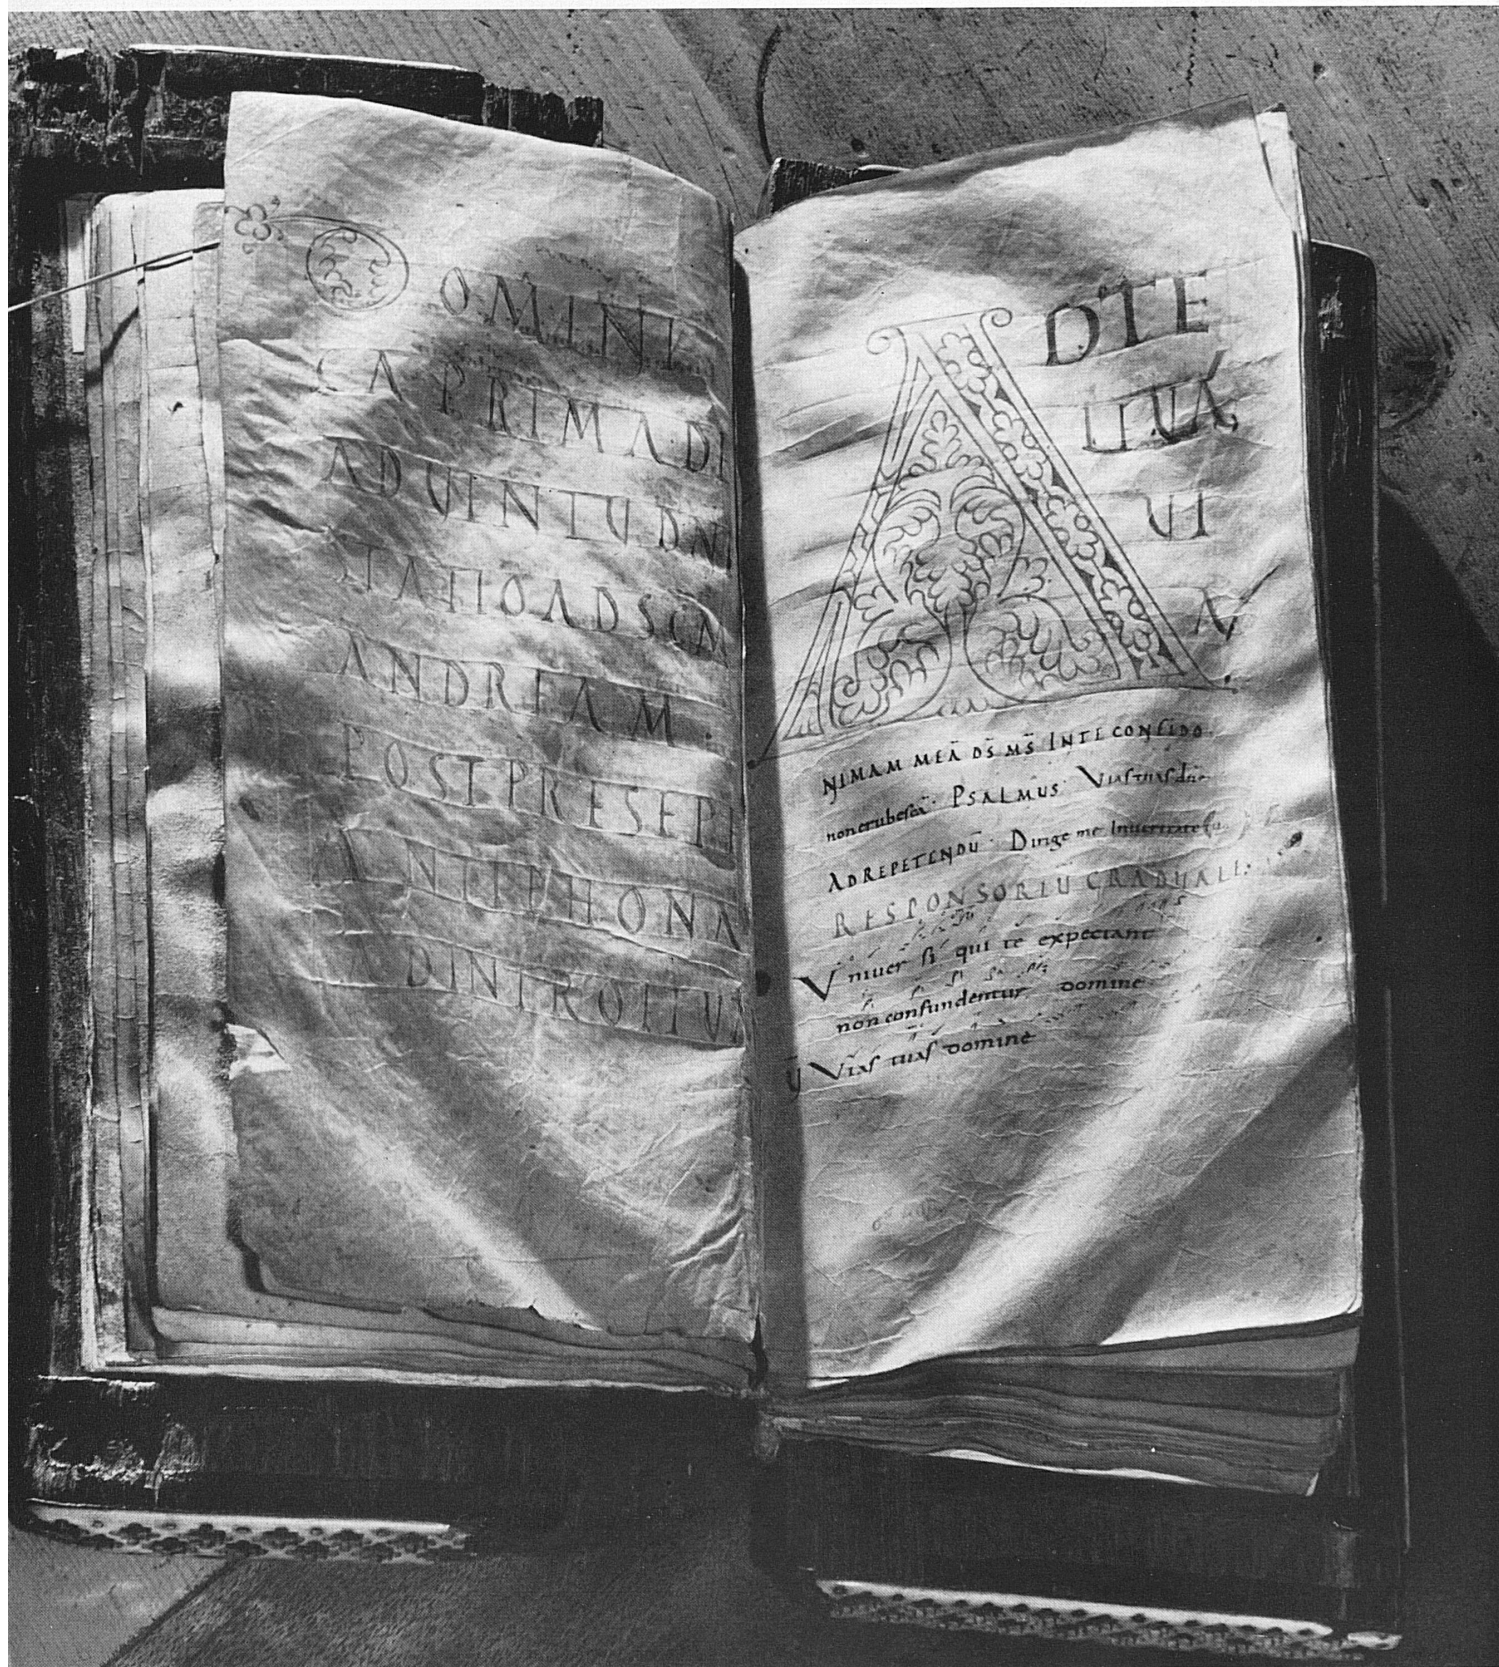 DOMINI
CA PRIMA DE
ADUENTU DNI
STATIO AD SCM
ANDREAM.
POST PRESEPE
ANTIPHONA
AD INTROITUM
AD TE
LEUA
UI
A
NIMAM MEĀ DS̄ MS̄ IN TE CONFIDO
non erubescā. PSALMUS Vias tuas dn̄e
AD REPETENDŪ. Dirige me In ueritate tua
RESPONSORIŪ GRADUALE
Vniuersi qui te expectant
non confundentur domine
V̄ Vias tuas domine